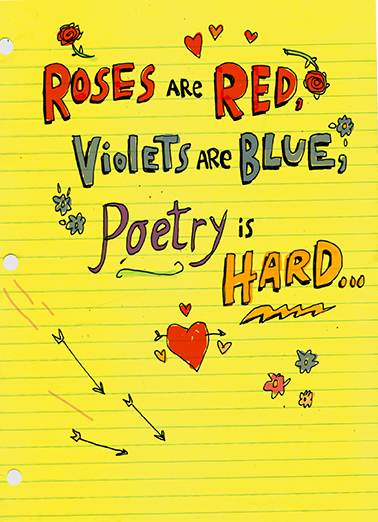 ROSES ARE RED,
VIOLETS ARE BLUE,
Poetry is
HARD...